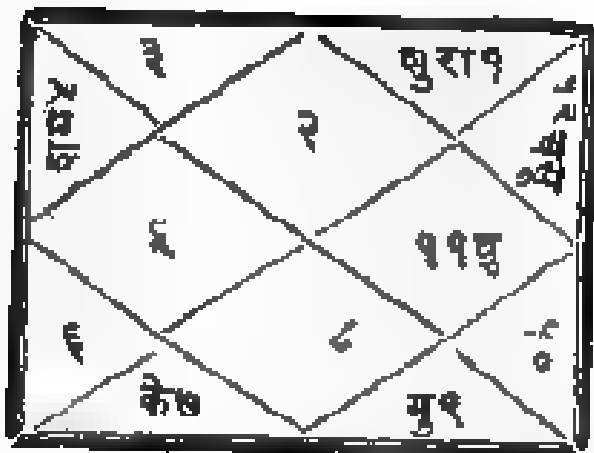 ३
शुरा१
२
५
११बु
६
८
१०
के७
गु९